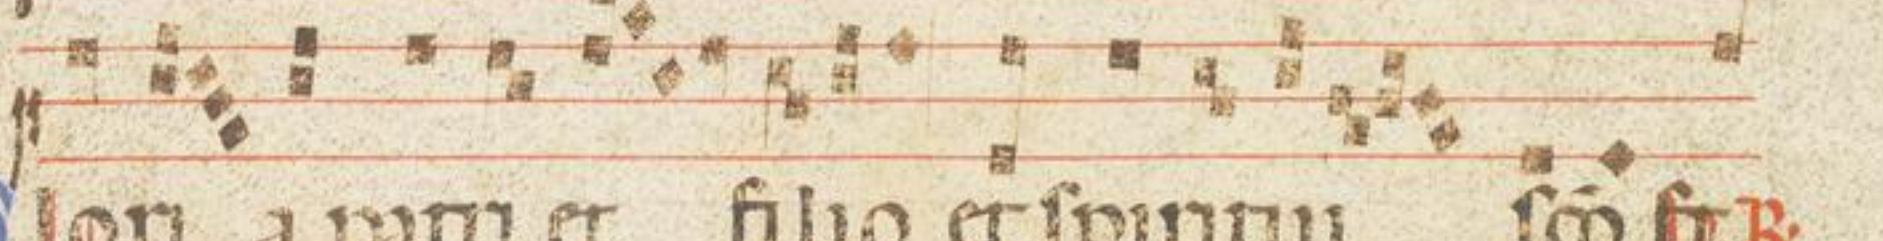 Glori a patri et filio et spiritui sco̅ sic℟.